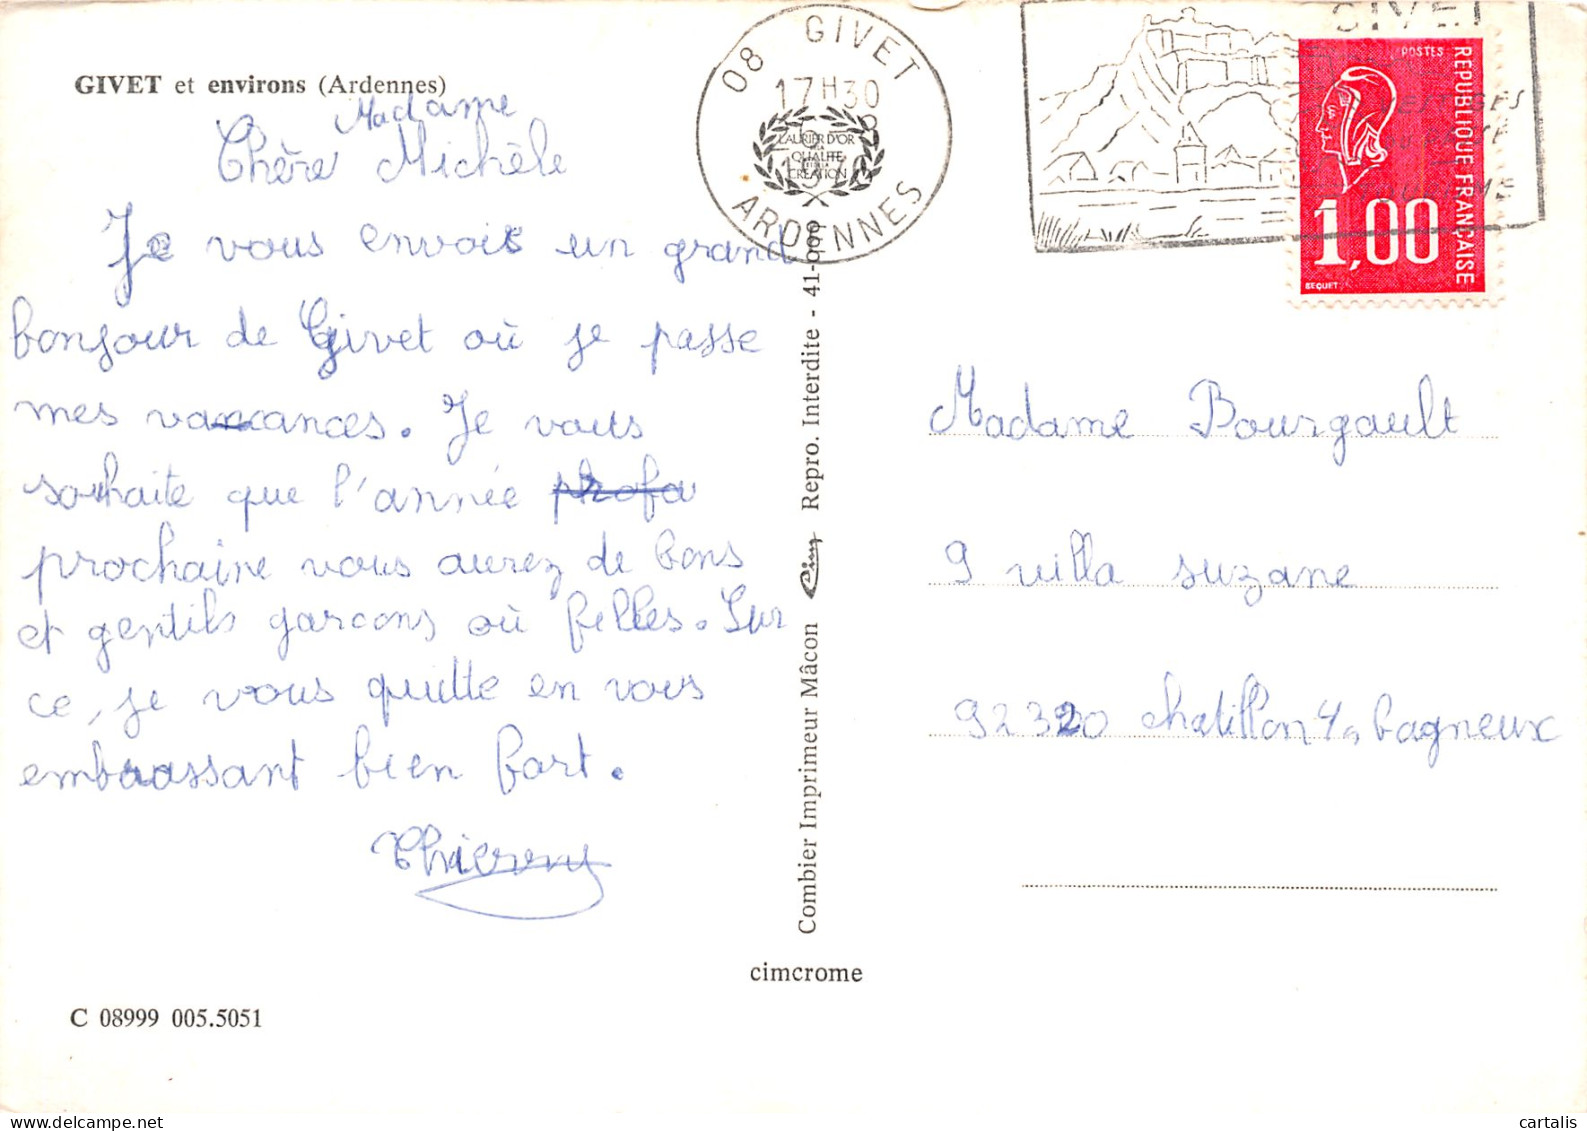 GIVET et environs (Ardennes)
Madame
Chère Michèle
Je vous envois un grand
bonjour de Givet où je passe
mes vacances. Je vous
souhaite que l'année
prochaine vous aurez de bons
et gentils garcons où filles. Sur
ce, je vous quitte en vous
embrassant bien fort.
Thierry
C 08999 005.5051
cimcrome
Combier Imprimeur Mâcon Cim Repro. Interdite - 41-000
08 GIVET
17H30
ARDENNES
LAURIER D'OR
DE LA
QUALITÉ
CRÉATION
GIVET
POSTES
REPUBLIQUE FRANÇAISE
1,00
BEQUET
Madame Bourgault
9 villa suzane
92320 chatillon s/s bagneux
cartalis